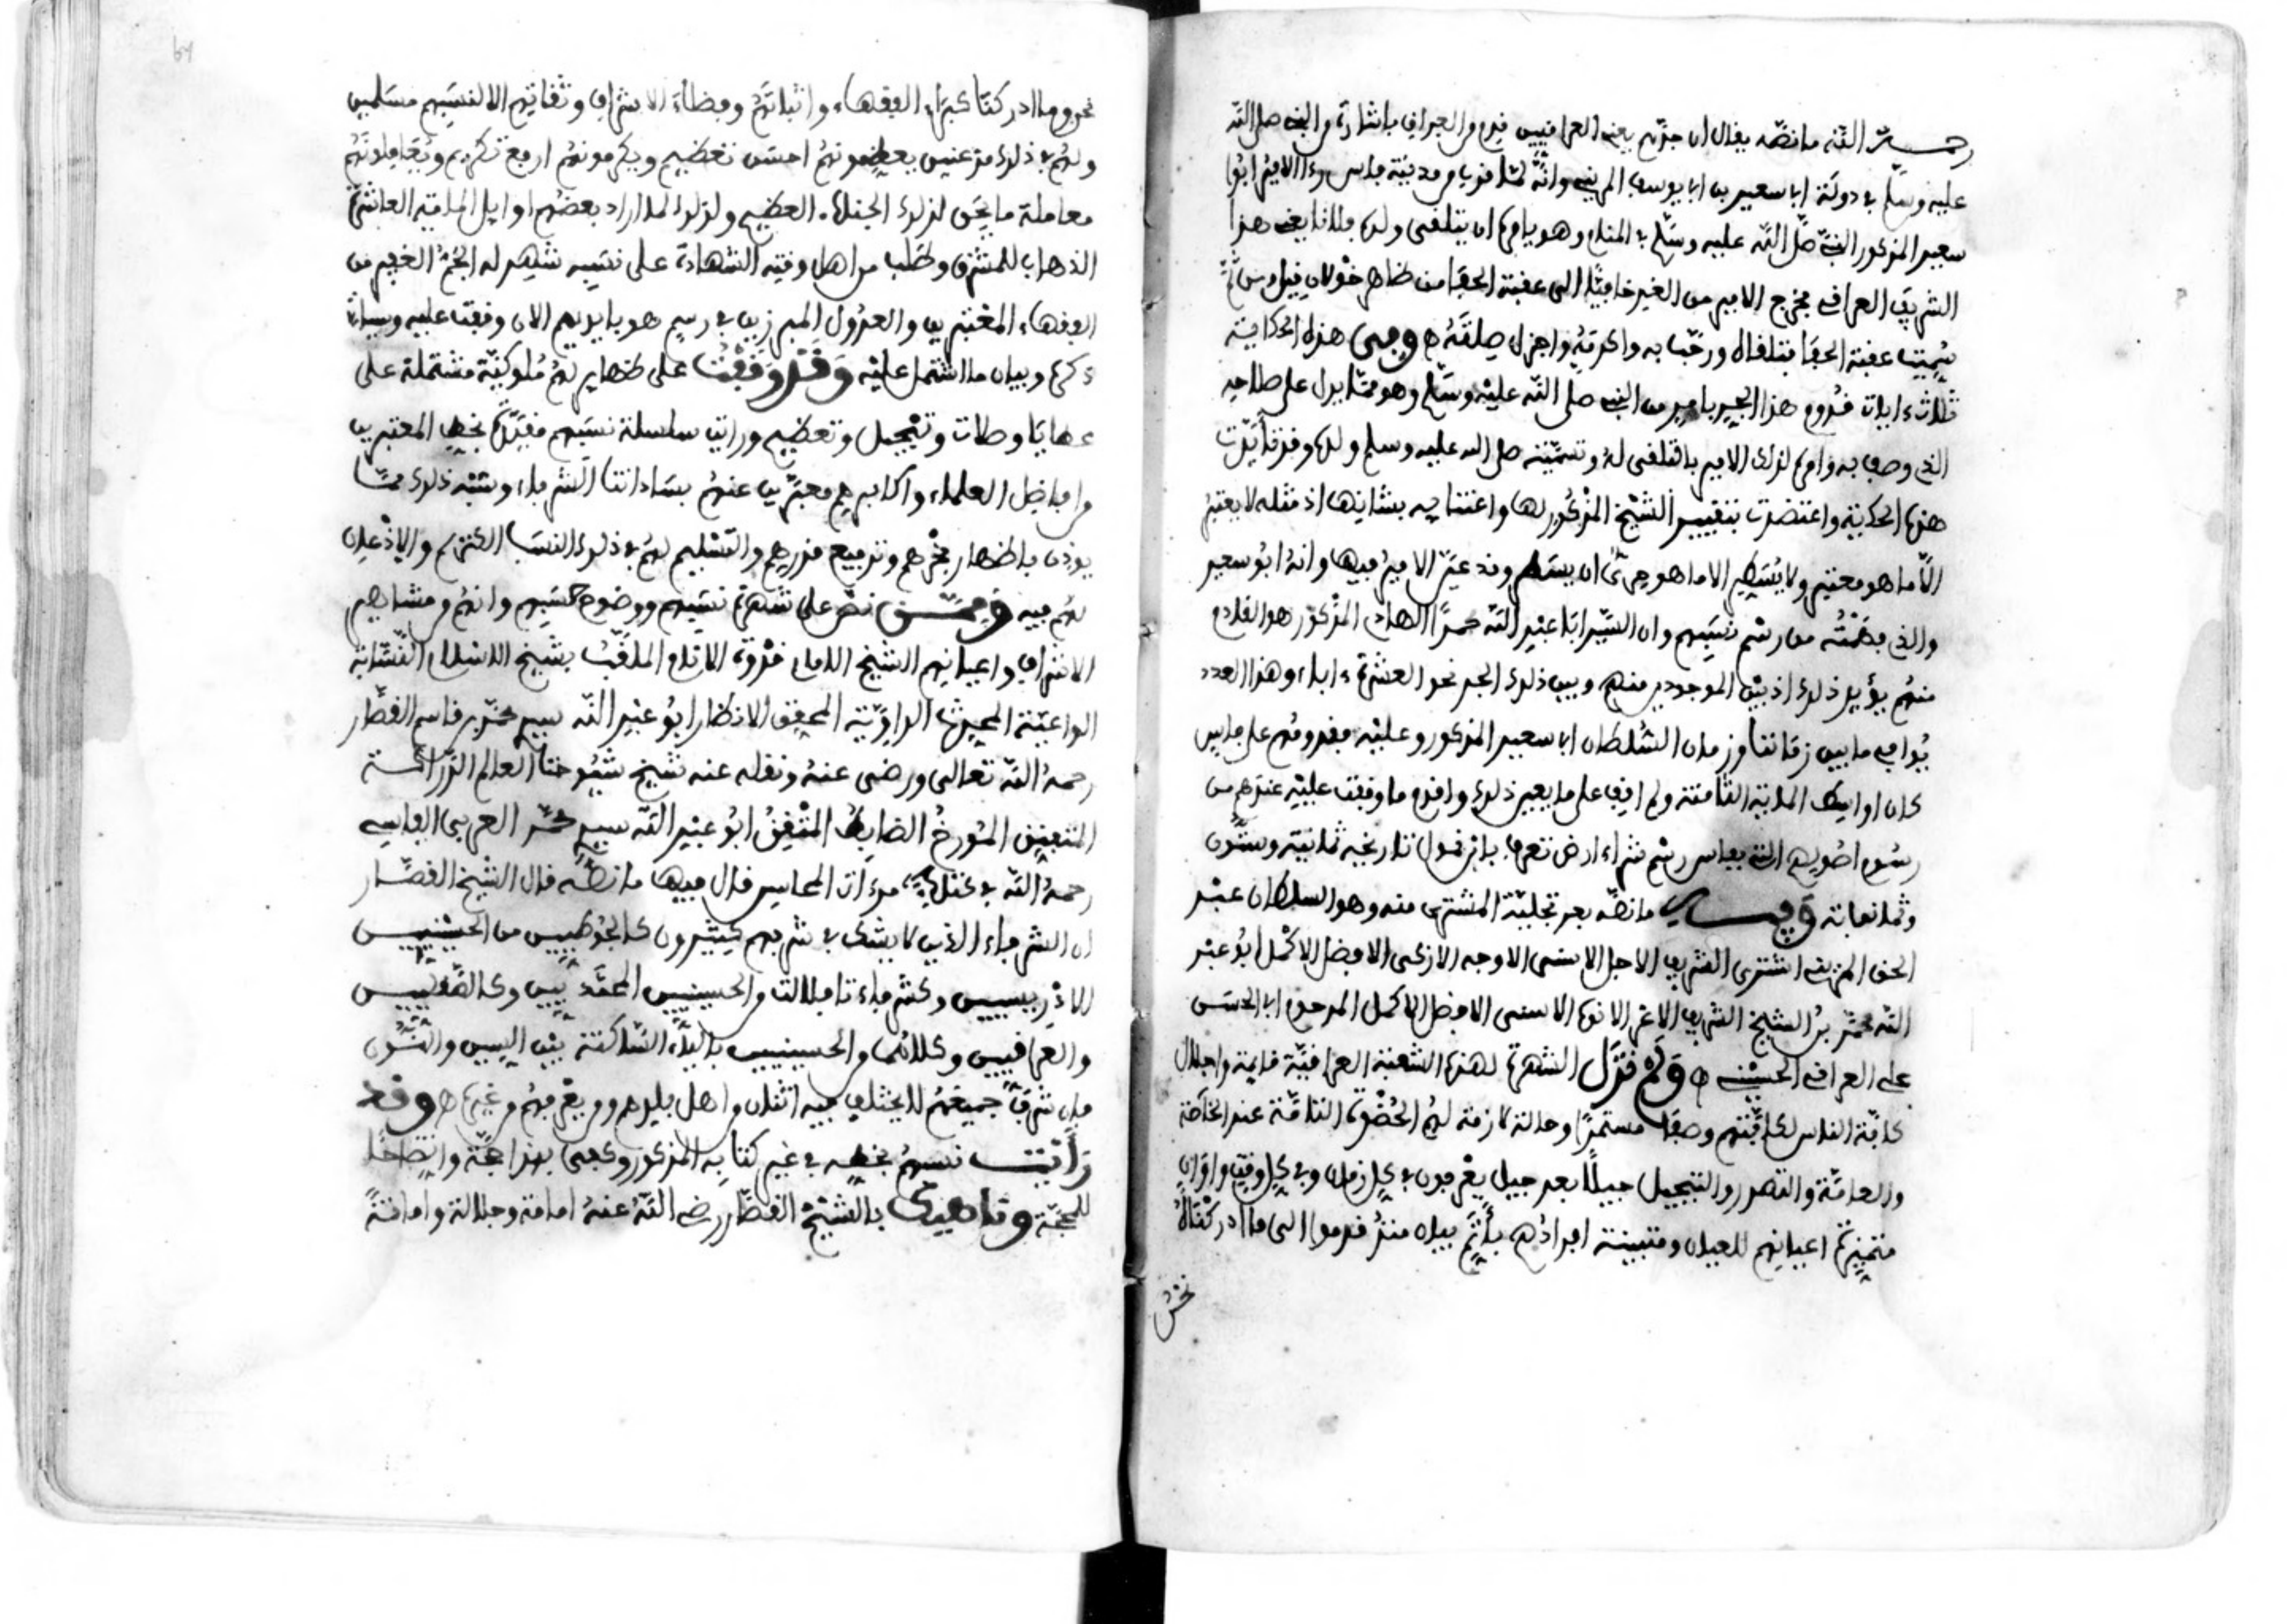 رحمه الله ما نصه يقال ان جدهم يعني العراقيين قدم من العراق باشارة من النبي صلى الله
عليه وسلم في دولة ابي سعيد بن ابي يوسف المريني وانه لما قرب من مدينة فاس رءا الامير ابو
سعيد المذكور النبي صلى الله عليه وسلم في المنام وهو يامره ان يتلقى ولده فلانا يعني هذا
الشريف العراقي فخرج الامير من الغد حافيا الى عقبة الحفا من ظاهر خولان قيل ومن ثم
سميت عقبة الحفا فتلقاه ورحب به واكرمه واجزل صلته ه وفي هذه الحكاية
ثلاث ءايات قدوم هذا الجد بامر من النبي صلى الله عليه وسلم وهو مما يدل على صلاحه
الذي وصف به وامره لذلك الامير بالتلقي له وتسميته صلى الله عليه وسلم ولده وقد تأيدت
هذه الحكاية واعتضدت بتقييد الشيخ المذكور لها واعتنائه بشانها اذ مثله لا يعتبر
الا ما هو معتبر ولا يسطر الا ما هو حري ان يسطر وقد عين الامير فيها وانه ابو سعيد
والذي تضمنه من رسم نسبهم وان السيد ابا عبد الله محمدا الهادي المذكور هو القادم
منهم يؤيد ذلك اذ بين الموجودين منهم وبين ذلك الجد نحو العشرة ءاباء وهذا العدد
يوافق ما بين زماننا وزمان السلطان ابي سعيد المذكور وعليه فقدومهم على فاس
كان اواسط المائة الثامنة ولم اقف على ما يعين ذلك واقدم ما وقفت عليه عندهم من
رسوم اصولهم التي بفاس رسم شراء ارض تعرف تاريخه ثمانية وستون
وثمانمائة وفيه ما نصه بعد تحلية المشتري منه وهو السلطان عبد
الحق المريني اشترى الشريف الاجل الاسمى الاوجه الازكى الافضل الاكمل ابو عبد
الله محمد بن الشيخ الشريف الاعز الانوه الاسمى الافضل الاكمل المرحوم ابي الحسن
علي العراقي الحسيني ه ولم تزل الشهرة لهذه الشعبة العراقية قائمة واجلال
كافة الناس لكافتهم وصفا مستمرا وحالة لازمة لهم الحظوة التامة عند الخاصة
والعامة والتصدر والتبجيل جيلا بعد جيل يعرفون في كل زمان وفي كل وقت واوان
متميزة اعيانهم للعيان ومتبينة افرادهم باتم بيان منذ قدموا الى ما ادركناه
نحن
نحن وما ادركنا كبراء الفقهاء واثباتهم وفضلاء الاشراف وثقاتهم الا لنسبهم مسلمين
ولهم في ذلك مذعنين يعظمونهم احسن تعظيم ويكرمونهم ارفع تكريم ويعاملونهم
معاملة ما يحق لذلك الجناب العظيم ولذلك لما اراد بعضهم اوايل المائة العاشرة
الذهاب للمشرق وطلب من اهل وقته الشهادة على نسبه شهد له الجم الغفير من
الفقهاء المعتبرين والعدول المبرزين في رسم هو بايديهم الان وقفت عليه وسياتي
ذكره وبيان ما اشتمل عليه وقد وقفنا على ظهاير لهم ملوكية مشتملة على
عطايا وصلات وتبجيل وتعظيم ورايت سلسلة نسبهم مقيدة بخط المعتبرين
من افاضل العلماء واكابرهم معبرين عنهم بساداتنا الشرفاء وشبه ذلك مما
يوذن باظهار فخرهم وترفيع قدرهم والتسليم لهم في ذلك النسب الكريم والاذعان
لهم فيه وممن نص على شهرة نسبهم ووضوح حسبهم وانهم من مشاهير
الاشراف واعيانهم الشيخ الامام قدوة الانام الملقب بشيخ الاسلام النسابة
الواعية المحدث الراوية المحقق الانظار ابو عبد الله سيدي محمد بن قاسم القصار
رحمه الله تعالى ورضي عنه ونقله عنه شيخ شيوخنا العالم الدراكة
المتفنن المؤرخ الضابط المتقن ابو عبد الله سيدي محمد العربي الفاسي
رحمه الله في كتابه مرءات المحاسن قال فيها ما نصه قال الشيخ القصار
ان الشرفاء الذين لا يشك في شرفهم كثيرون كالجوطيين من الحسنيين
الادريسيين وكشرفاء تافيلالت من الحسنيين المحمديين وكالصقليين
والعراقيين وكلاهما من الحسينيين بالياء الساكنة بين السين والنون
فان شرف جميعهم لا يختلف فيه اثنان من اهل بلدهم ومن يعرفهم من غيرها ه وقد
رأيت نسبهم بخطه في غير كتابه المذكور وكفى بهذا حجة وايضاحا
للمحجة وناهيك بالشيخ القصار رضي الله عنه امامة وجلالة وامانة